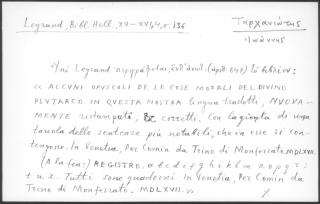 Legrand, Bibl. Hell., XV–XVI, 4, σ. 136
Ταρχανιώτης
Ἰωάννης
Ὑπὸ Legrand περιγράφεται, (ἀριθ. 647) τὸ βιβλίον:
« ALCUNI OPUSCOLI DE LE COSE MORALI DEL DIVINO
PLUTARCO IN QUESTA NOSTRA lingua tradotti, NUOVA-
MENTE ristampati, & corretti. Con la giunta di una
tavola delle sentenze più notabili, che in esse si con-
tengono. In Venetia, Per Comin da Trino di Monferrato. MDLXVII.
(A la fin:) REGISTRO. a b c d e f g h i k l m n o p q r s
t u x. Tutti sono quaderni In Venetia, Per Comin da
Trino di Monferrato. MDLXVII. »